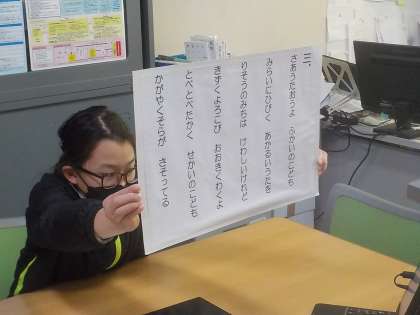 三、
さあうたおうよ　ふかいのこども
みらいにひびく　あかるいうたを
りそうのみちは　けわしいけれど
きずくよろこび　おおきくわくよ
とべとべたかく　せかいのこども
かがやくそらが　さそってる